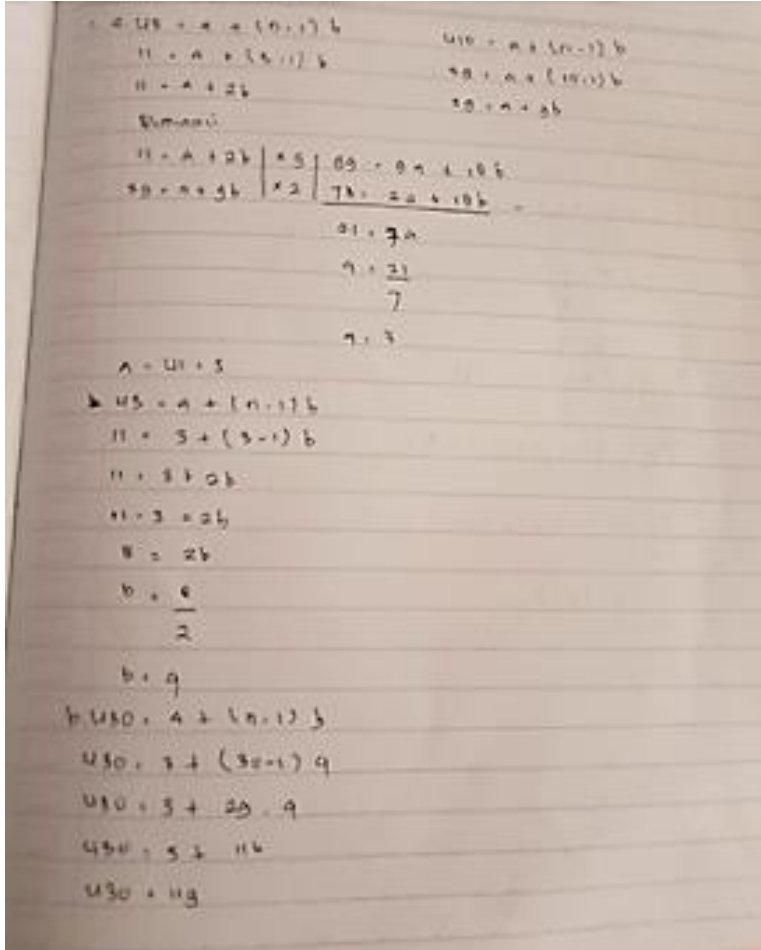 a. U3 = a + (n-1) b
11 = a + (3-1) b
11 = a + 2b
U10 = a + (n-1) b
39 = a + (10-1) b
39 = a + 9b
Eliminasi
11 = a + 2b | × 9 | 99 = 9a + 18b
39 = a + 9b | × 2 | 78 = 2a + 18b -
21 = 7a
a = 21
7
a = 3
a = U1 = 3
U3 = a + (n-1) b
11 = 3 + (3-1) b
11 = 3 + 2b
11 - 3 = 2b
8 = 2b
b = 8
2
b = 4
b. U30 = a + (n-1) b
U30 = 3 + (30-1) 4
U30 = 3 + 29 . 4
U30 = 3 + 116
U30 = 119